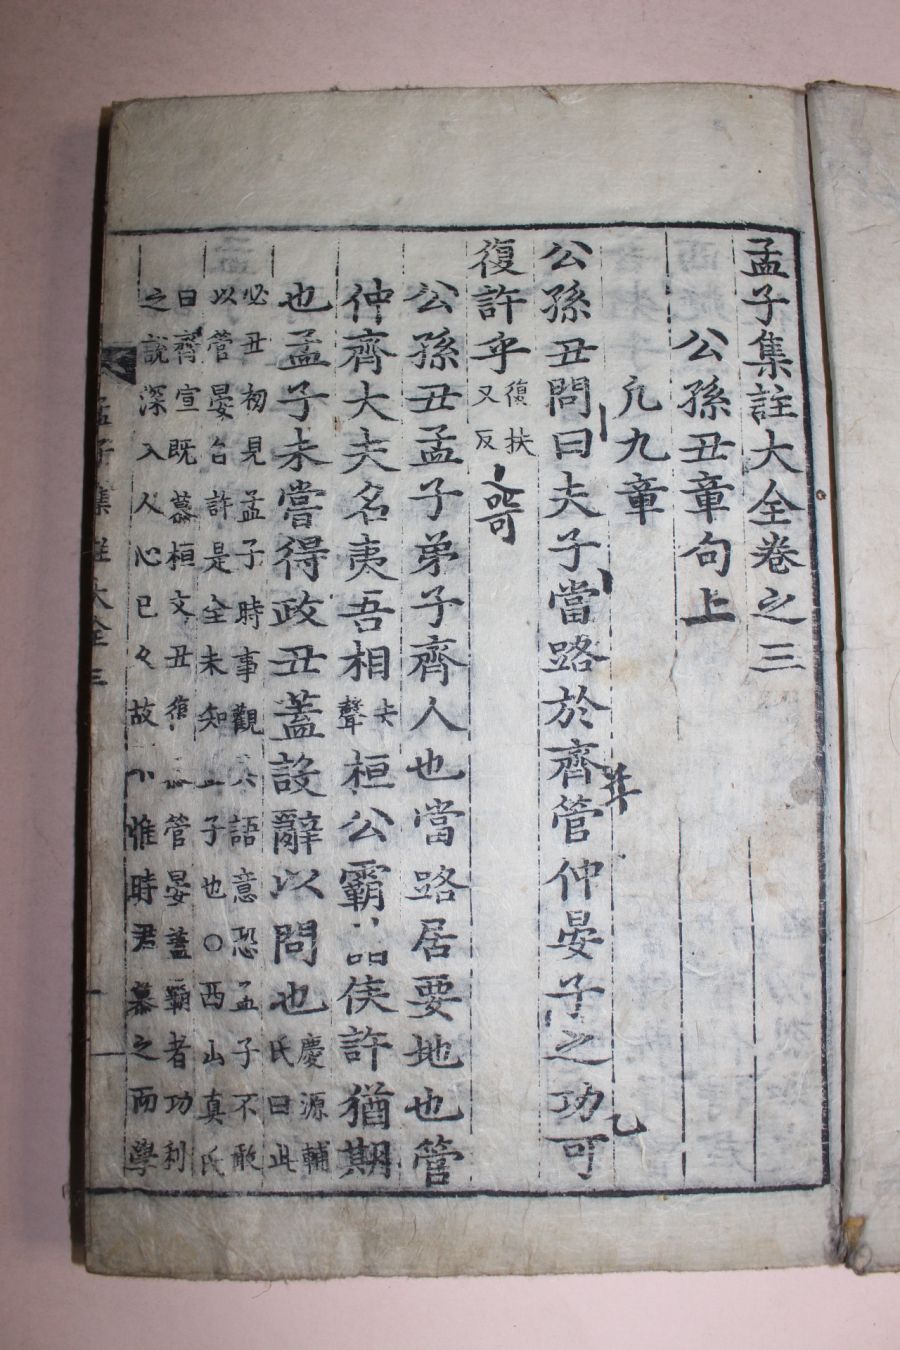 孟子集註大全卷之三
公孫丑章句上
凡九章
公孫丑問曰夫子當路於齊管仲晏子之功可
復許乎
復扶
又反
公孫丑孟子弟子齊人也當路居要地也管
仲齊大夫名夷吾相
去
聲
桓公霸諸侯許猶期
也孟子未嘗得政丑蓋設辭以問也
慶源輔
氏曰此
必丑初見孟子時事觀其語意恐孟子不敢
以管晏自許是全未知孟子也○西山真氏
曰齊宣既慕桓文丑復慕管晏蓋霸者功利
之說深入人心已久故不惟時君慕之而學
孟子集註大全三